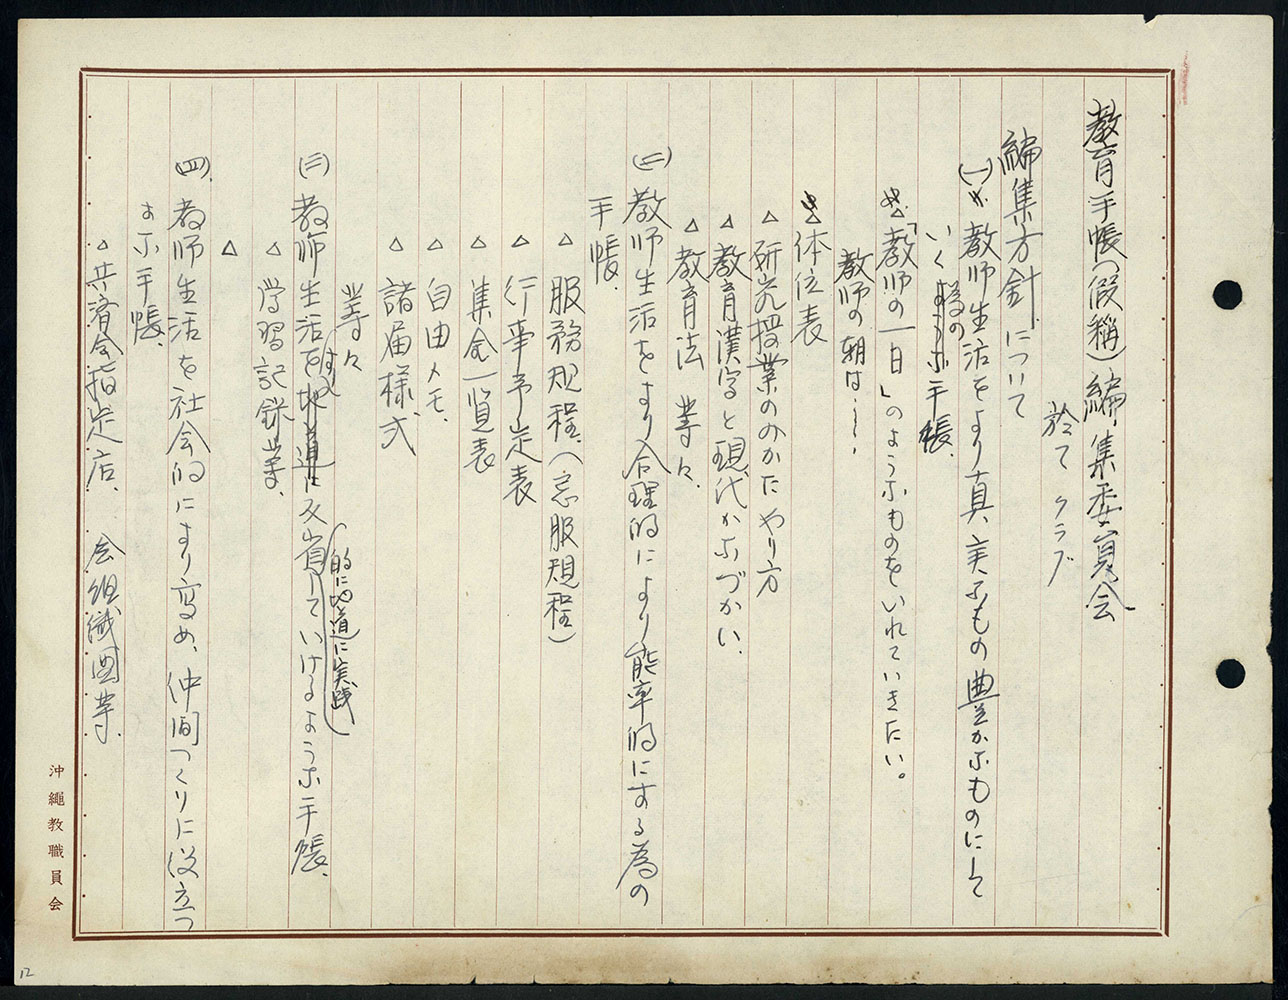 教育手帳(假稱)編集委員会
於て クラブ
編集方針について
(一) 教師生活をより真実なもの豊かなものにして
いく為の手帳、
△「教師の一日」のようなものをいれていきたい。
教師の朝は……
△体位表
△研究授業ののかたやり方
△教育漢字と現代かなづかい、
△教育法 等々、
(二)教師生活をより合理的により能率的にする為の
手帳、
△服務規程、(忌服規程)
△行事予定表
△集会一覧表
△自由メモ、
△諸届様式
等々
(三)教師生活を反省していけるような手帳、
的に地道に実践
△学習記録等、
△
(四)教師生活を社会的により高め、仲間つくりに役立つ
ような手帳、
△共済会指定店、 会組織図等、
沖繩教職員会
12